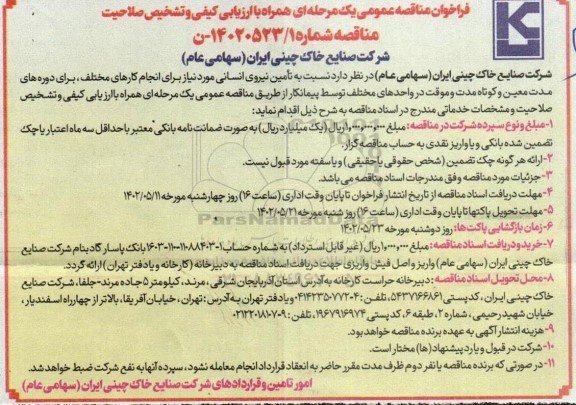 فراخوان مناقصه عمومی یک مرحله ای همراه با ارزیابی کیفی و تشخیص صلاحیت
مناقصه شماره ۱۴۰۲۰۵۲۳/۱-ن
شرکت صنایع خاک چینی ایران (سهامی عام)
شرکت صنایع خاک چینی ایران (سهامی عام) در نظر دارد نسبت به تأمین نیروی انسانی مورد نیاز برای انجام کارهای مختلف، برای دوره های
مدت معین و کوتاه مدت و موقت در واحدهای مختلف توسط پیمانکار از طریق مناقصه عمومی یک مرحله ای همراه با ارزیابی کیفی و تشخیص
صلاحیت و مشخصات خدماتی مندرج در اسناد مناقصه به شرح ذیل اقدام نماید:
۱-مبلغ و نوع سپرده شرکت در مناقصه: مبلغ ۱٫۰۰۰٫۰۰۰٫۰۰۰ ریال (یک میلیارد ریال) به صورت ضمانت نامه بانکی معتبر با حداقل سه ماه اعتبار یا چک
تضمین شده بانکی و یا واریز نقدی به حساب مناقصه گزار.
۲-ارائه هر گونه چک تضمین (شخص حقوقی یا حقیقی) و یا سفته مورد قبول نیست.
۳-جزئیات مورد مناقصه وفق مندرجات اسناد مناقصه می باشد.
۴-مهلت دریافت اسناد مناقصه از تاریخ انتشار فراخوان تا پایان وقت اداری (ساعت ۱۶) روز چهارشنبه مورخه ۱۴۰۲/۰۵/۱۱
۵-مهلت تحویل پاکتها تا پایان وقت اداری (ساعت ۱۶) روز شنبه مورخه ۱۴۰۲/۰۵/۲۱
۶-زمان بازگشایی پاکت ها: روز دوشنبه مورخه ۱۴۰۲/۰۵/۲۳
۷-خرید و دریافت اسناد مناقصه: مبلغ ۱٫۰۰۰٫۰۰۰ ریال (غیر قابل استرداد) به شماره حساب ۱-۱۰۸۸۴۰۳-۱۱۰-۱۶۰۳ بانک پاسارگاد بنام شرکت صنایع
خاک چینی ایران (سهامی عام) واریز و اصل فیش واریزی جهت دریافت اسناد مناقصه به دبیرخانه (کارخانه و یا دفتر تهران) ارائه گردد.
۸-محل تحویل اسناد مناقصه: دبیرخانه حراست کارخانه به آدرس استان آذربایجان شرقی، مرند، کیلومتر ۵ جاده مرند-جلفا، شرکت صنایع
خاک چینی ایران، کدپستی ۵۴۳۷۱۶۶۸۶۱، تلفن: ۰۴۱۴۲۳۵۰۷۷۲۰۴ و یا دفتر تهران به آدرس: تهران، خیابان آفریقا، بالاتر از چهارراه اسفندیار،
خیابان شهید رحیمی، شماره ۲، طبقه ۶، کد پستی ۱۹۶۷۹۱۶۹۷۴، تلفن: ۰۲۱۲۲۰۱۸۰۷۰۹
۹-هزینه انتشار آگهی به عهده برنده مناقصه خواهد بود.
۱۰-شرکت در قبول و یا رد پیشنهاد(ها) مختار است.
۱۱-در صورتی که برنده مناقصه یا نفر دوم ظرف مدت مقرر حاضر به انعقاد قرارداد انجام معامله نشود، سپرده آنها به نفع شرکت ضبط خواهد شد.
امور تامین و قراردادهای شرکت صنایع خاک چینی ایران (سهامی عام)
ParsNamadData